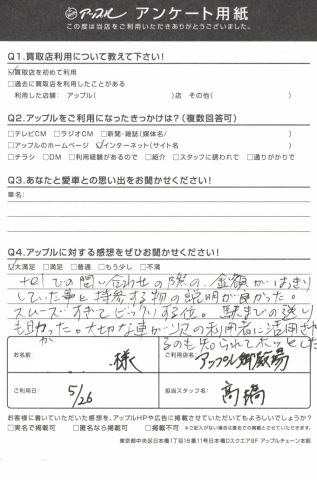 アップル アンケート用紙
この度は当店をご利用いただきありがとうございました。
Q1.買取店利用について教えて下さい!
☑買取店を初めて利用
□過去に買取店を利用したことがある
利用した店舗： アップル( )店 その他( )
Q2.アップルをご利用になったきっかけは？(複数回答可)
□テレビCM □ラジオCM □新聞・雑誌(媒体名/ )
□アップルのホームページ ☑インターネット(サイト名 )
□チラシ □DM □利用経験があるので □紹介 □スタッフに誘われて □通りがかりで
Q3.あなたと愛車との思い出をお聞かせください!
車名：
Q4.アップルに対する感想をぜひお聞かせください!
☑大満足 □満足 □普通 □もう少し □不満
telでの問い合わせの際の、金額がはっきり
していた事と持参する物の説明が良かった。
スムーズすぎてビックリする位。駅までの送り
も助かった。大切な車が次の利用者に活用され
るのも知られてホッとした
お名前： 様
ご利用店名： アップル御殿場
ご利用日： 5/26
担当スタッフ名： 高橋
お客様に書いていただいた感想を、アップルHPや広告に掲載させていただいてもよろしいでしょうか?
□実名で掲載可 □匿名なら掲載可 □掲載不可 ※ご記入がない場合は匿名での掲載とさせていただきます。
東京都中央区日本橋1丁目16番11号日本橋Dスクエア9F アップルチェーン本部